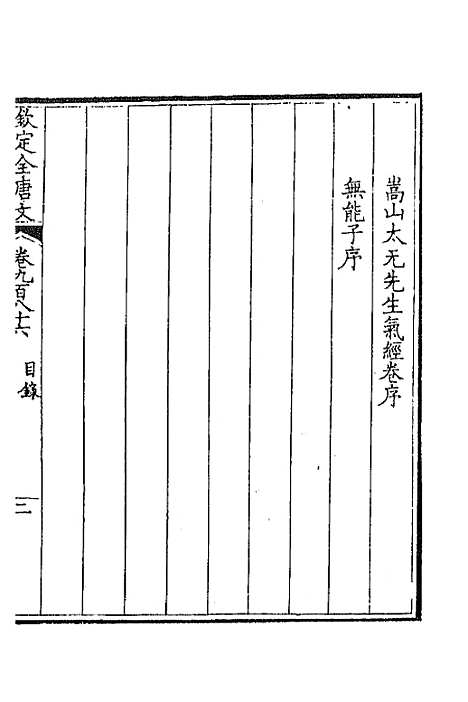 嵩山太无先生氣經卷序
無能子序
欽定全唐文
卷九百八十六
目錄
二